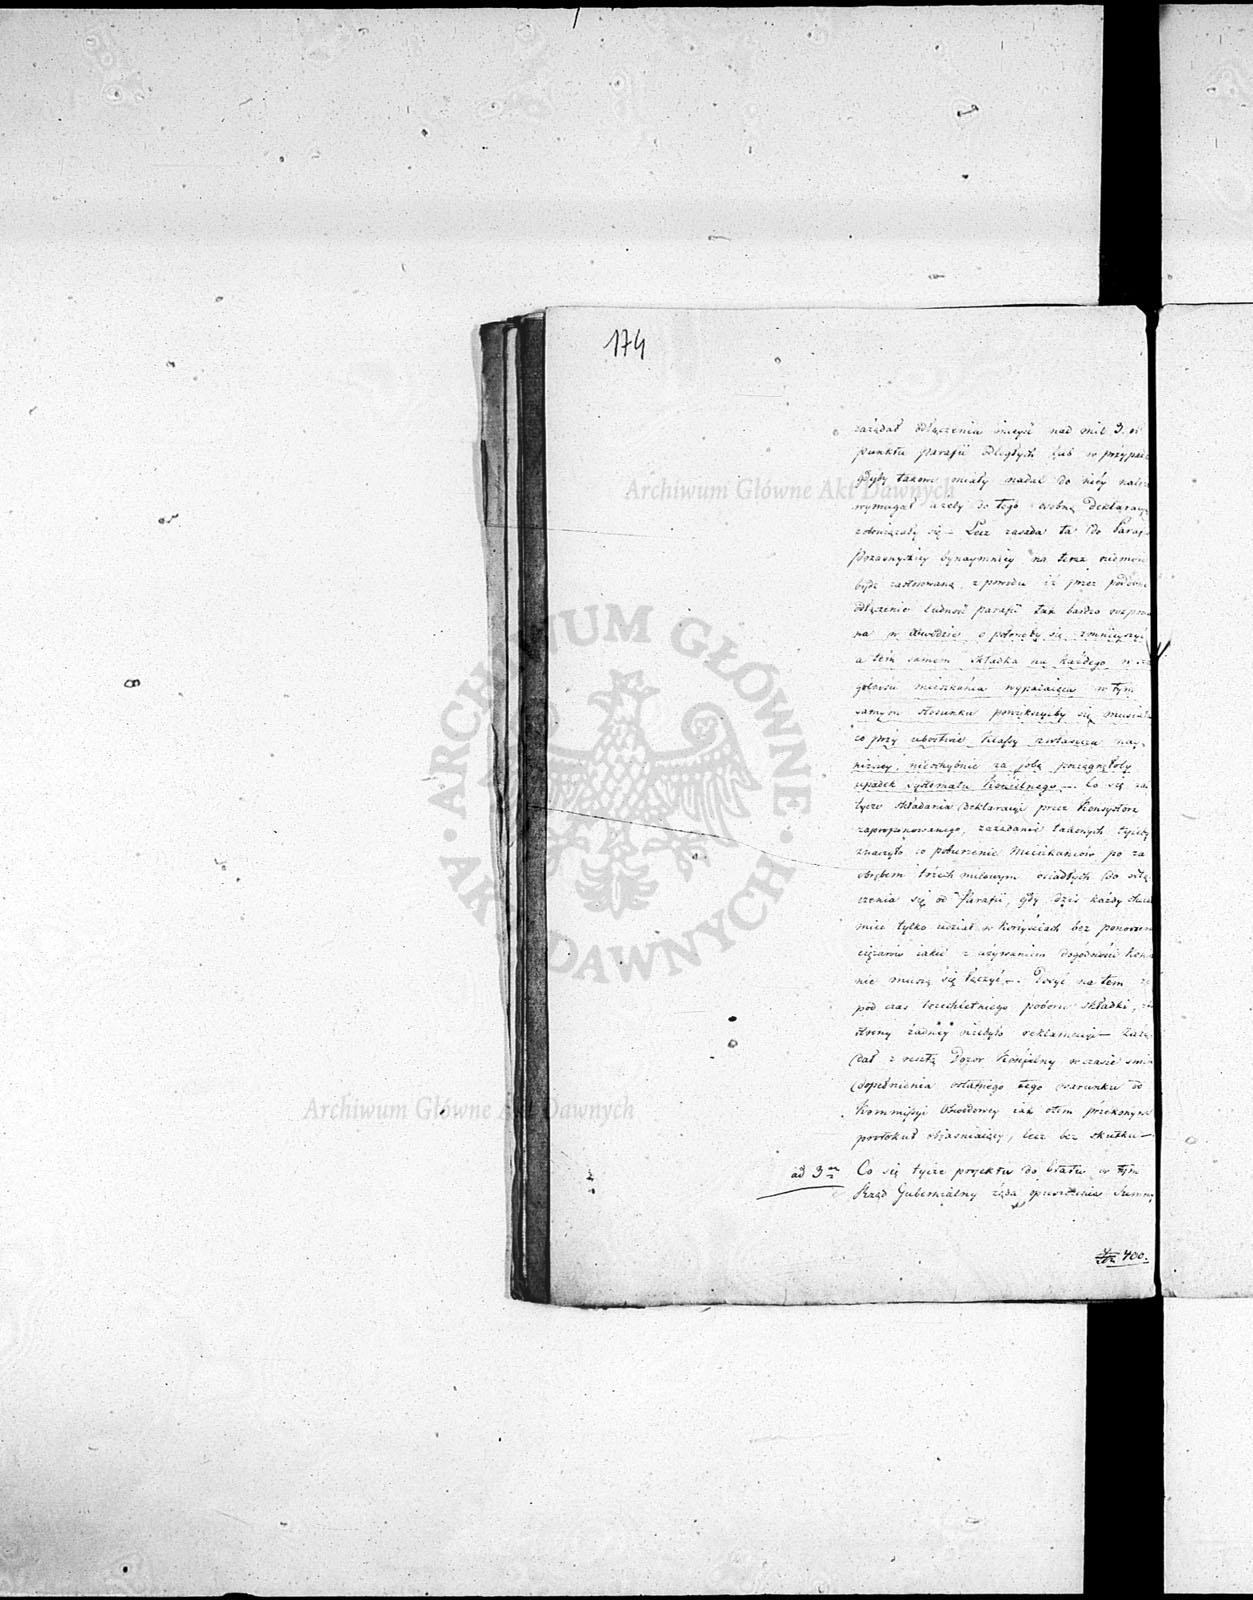 174
zażądał odłączenia mieysc nad mil 3. od
punktu parafii odległych lub w przypad
gdyby takowe miały nadal do niey należ
wymagał ażeby do tego osobną deklaracyą
zobowiązały się — Lecz zasada ta do Paraf
bynaymniey na teraz niemoże
bydź zastosowaną, z powodu iż przez podobne
odłączenie ludność parafii tak bardzo
na w Obwodzie o połowęby się zmnieyszył
a tém samem składka na każdego w
gólności mieszkańca wypadaiąca w tym
samym stosunku powiększyćby się musiała
co przy ubóstwie klassy zwłaszcza nay-
niższey, niechybnie za sobą pociągnęłoby
upadek systematu kościelnego —. Co się za
tycze składania deklaracyi przez Konsystorz
zaproponowanego, zażądanie takowych tyleby
znaczyło co poburzenie Mieszkańców po za
obrębem trzech milowym osiadłych do odłą-
czenia się od Parafii, gdy dziś każdy chce
mieć tylko udział w korzyściach bez ponoszen
ciężarów iakie z używaniem dogodności
nie muszą się łączyć —. Dosyć na tem że
pod czas trzechletniego poboru składki, ze
strony żadney niebyło reklamacyi — Zażą-
dał z resztą Dozor Kościelny w czasie
dopełnienia ostatniego tego warunku od
Kommissyi Obwodowey iak otem przekonywa
protokuł obiaśniaiący, lecz bez skutku —
ad 3m Co się tycze projektu do Etatu w tym
Rząd Gubernialny żąda opuszczenia Summy
400.
Archiwum Główne Akt Dawnych
ARCHIWUM GŁÓWNE
· AKT DAWNYCH ·
Archiwum Główne Akt Dawnych